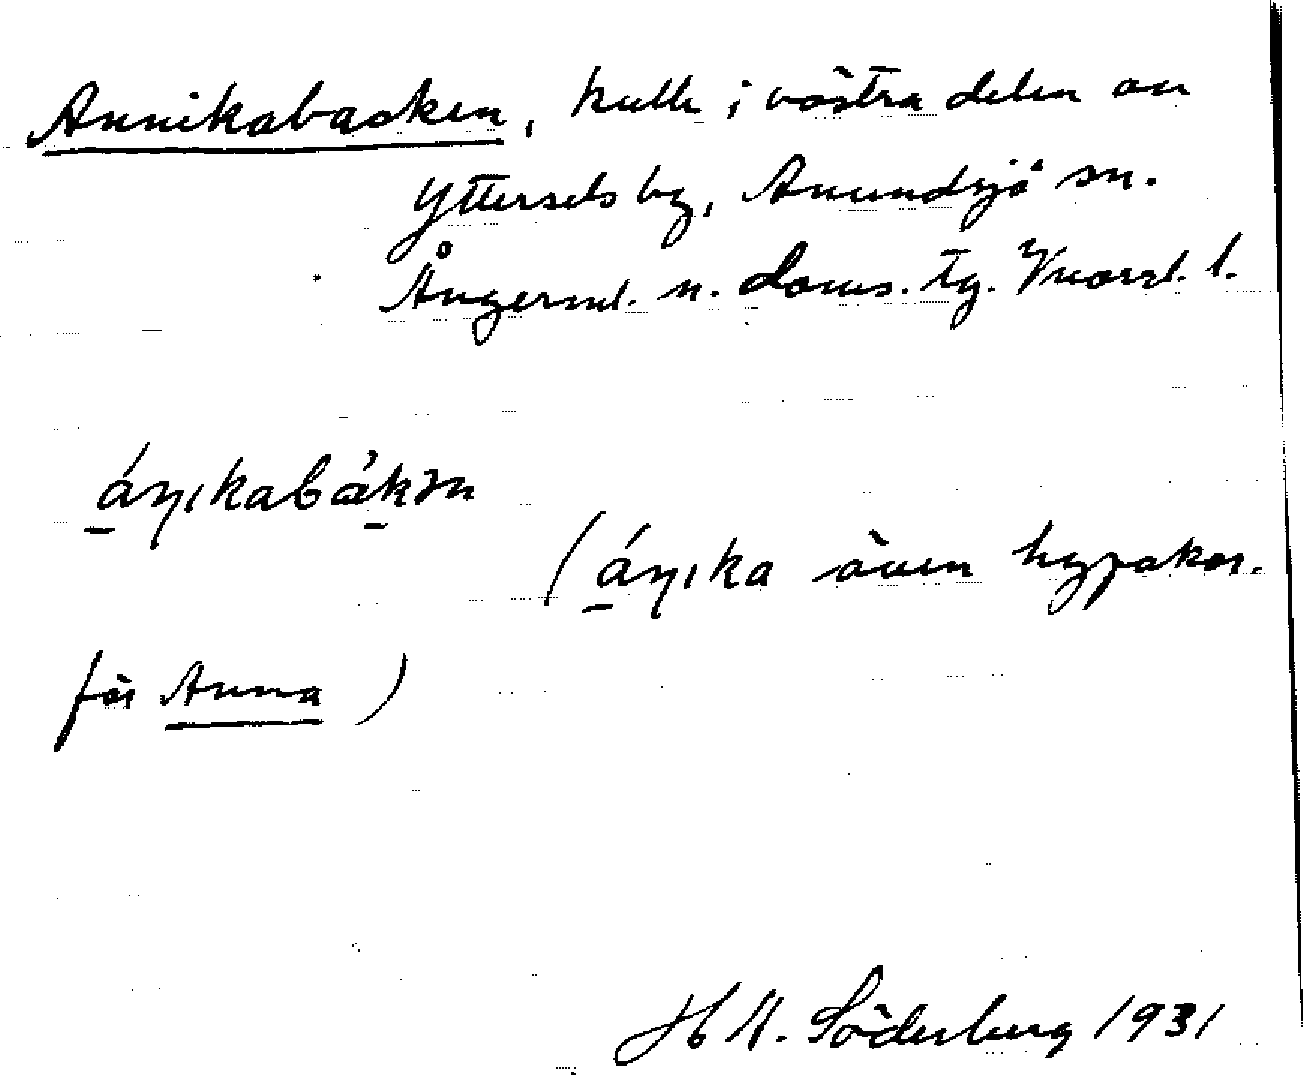 Annikabacken, kulle i västra delen av
Yttersels by, Anundsjö sn.
Ångerml. n. doms. tg. Vnorrl. l.
áṇıkabákən
(áṇıka även hypokor.
för Anna)
H M. Söderberg 1931